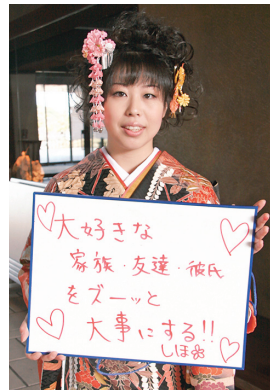 大好きな
家族・友達・彼氏
をズーッと
大事にする!!
しほ